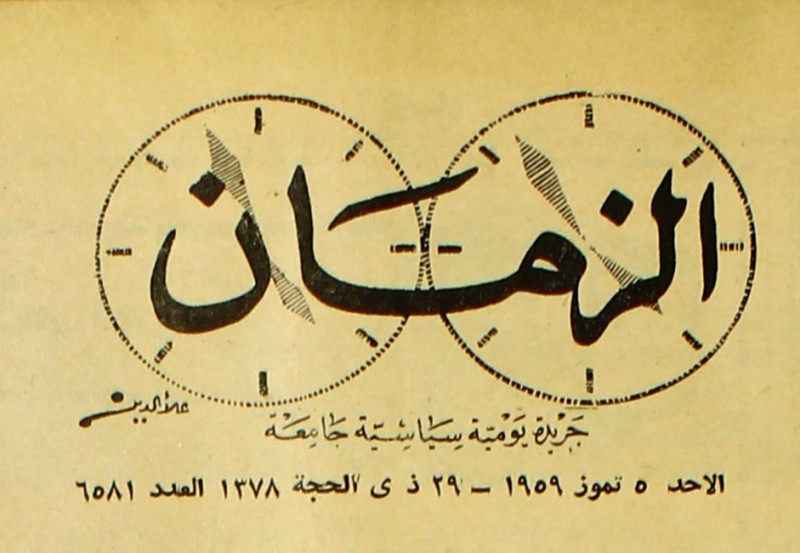 الزمان
علاء الدين
جريدة يومية سياسية جامعة
الاحد ٥ تموز ١٩٥٩ – ٢٩ ذي الحجة ١٣٧٨ العدد ٦٥٨١